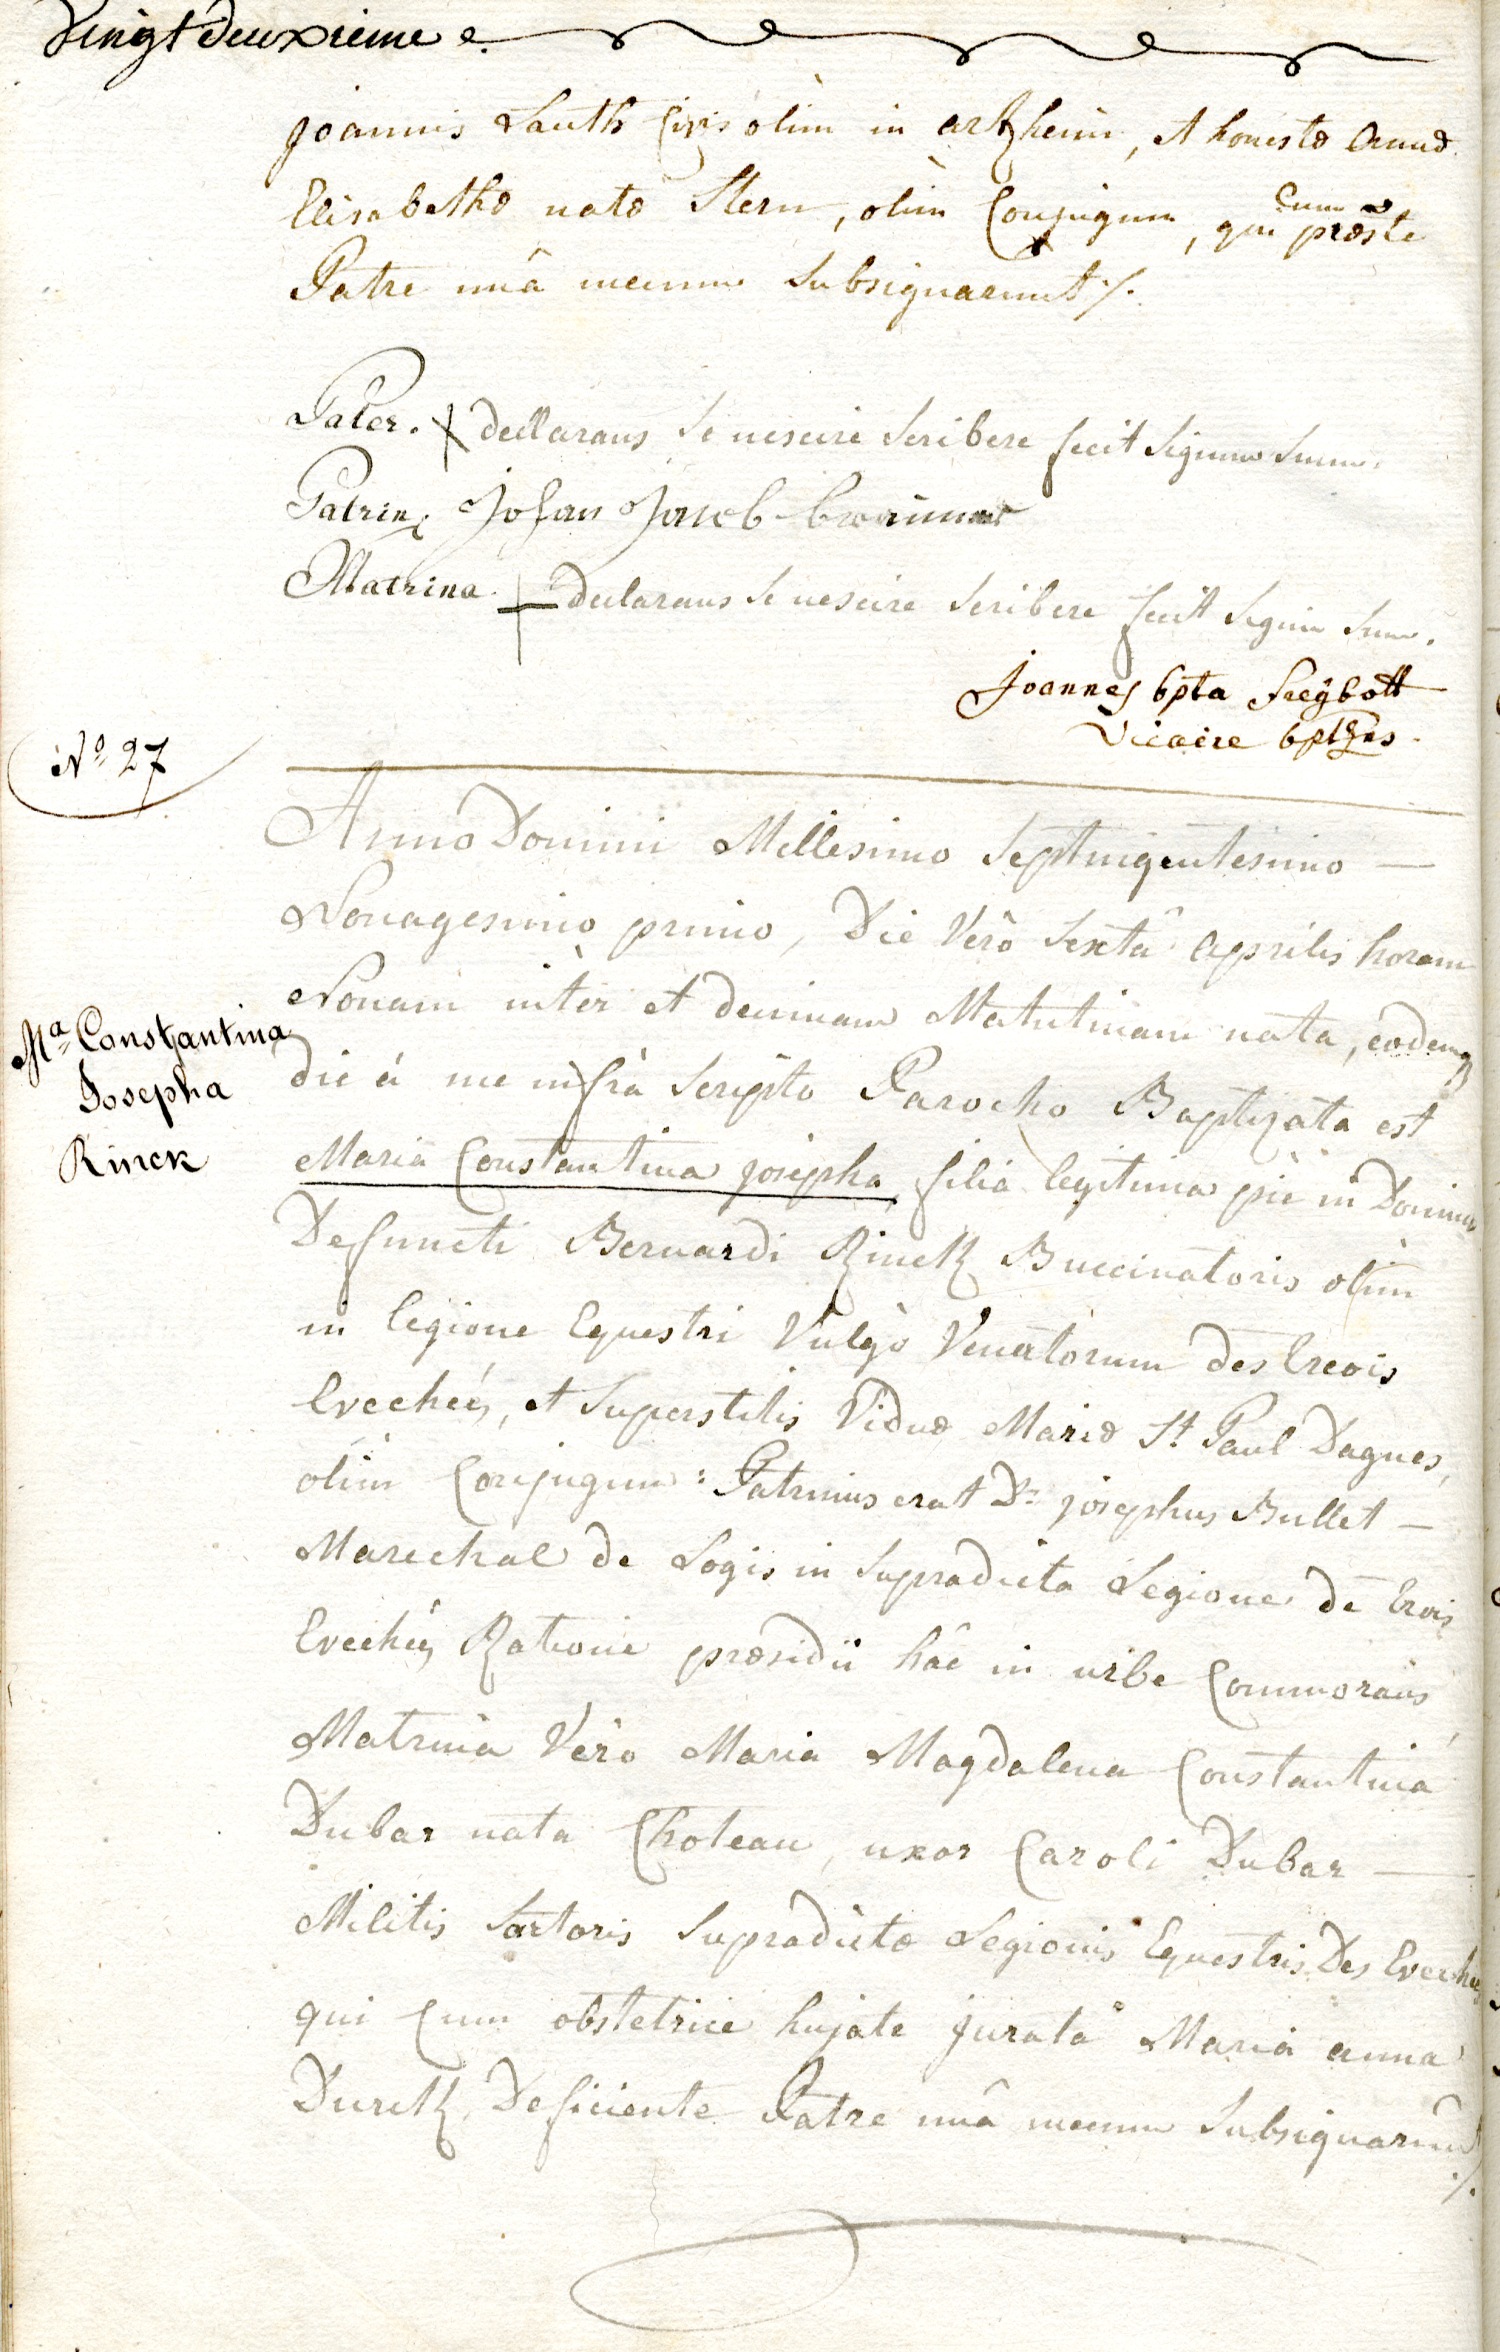 Vingt deuxieme
Joannis Lauth Civis olim in artzheim, et honestæ Annæ
Elisabethæ natæ Stern, olim Conjugum, qui cum præste
Patre unâ mecum Subsignarunt ./.
Pater. declarans Se nescire Scribere fecit Signum Suum.
Patrin9 Johan Jacob
Matrina declarans Se nescire Scribere fecit Signum Suum.
Joannes bpta Freÿbott
Vicaire bptzns.
N° 27
Anno Domini Millesimo Septingentesimo —
Nonagesimo primo, Die Verò Sextâ Aprilis horam
Nonam inter et decimam Matutinam nata, eodemq
die á me infrà Scripto Parocho Baptizata est
Ma Constantina
Josepha
Rinck
Maria Constantina Josepha, filia legitima piè in Domino
Defuncti Bernardi Rinck Buccinatoris olim
in legione Equestri Vulgò Venatorum des trois
Evecheés, et Superstitis Viduæ Mariæ St Paul Dagues,
olim Conjugum : Patrinus erat Ds Josephus Bullet —
Marechal de Logis in Supradicta Legione de trois
Evechés Ratione præsidii hâc in urbe Commorans,
Matrina Verò Maria Magdalena Constantina
Dubar nata Choteau, uxor Caroli Dubar —
Militis Sartoris Supradictæ Legionis Equestris Des Evechés
qui Cum obstetrice hujate jurata Maria anna
Durck, Deficiente Patre unâ mecum Subsignarunt
./.